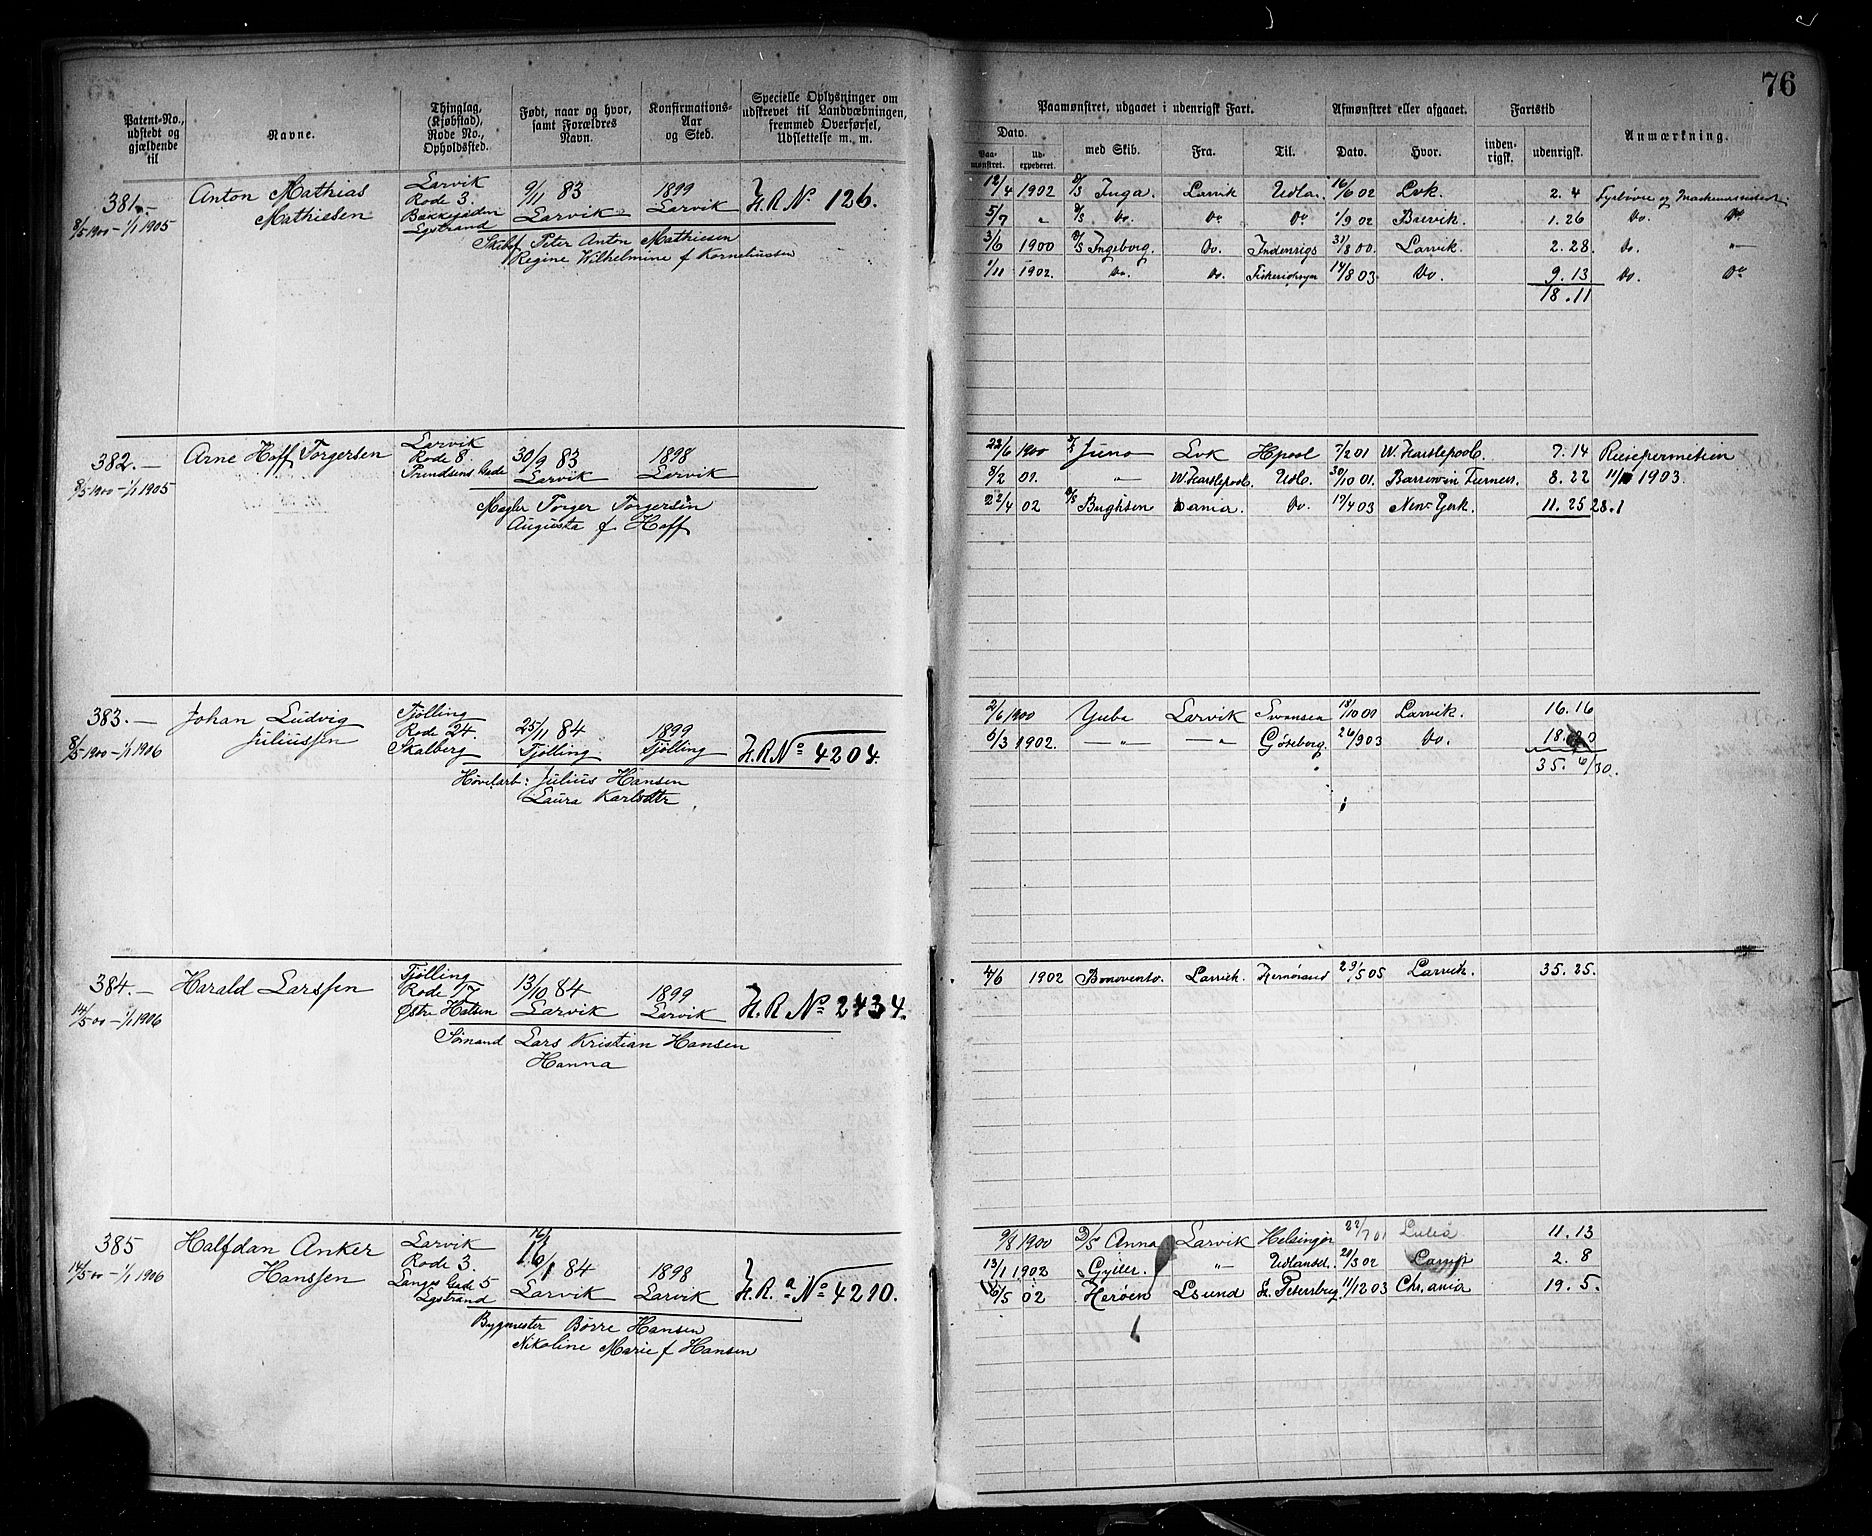 76
Patent-No., udstedt og gjældende til
Navne.
Thinglag, (Kjøbstad), Rode No., Opholdssted.
Født, naar og hvor, samt Forældres Navn.
Konfirmations-Aar og Sted.
Specielle Oplysninger om udskrevet til Landvæbningen, fremmed Overførsel, Udslettelse m. m.
Paamønstret, udgaaet i udenrigsk Fart.
Afmønstret eller afgaaet.
Fartstid
Anmærkning.
Dato.
Paa-mønstret.
Ud-expederet.
med Skib.
Fra.
Til.
Dato.
Hvor.
inden-rigsk.
udenrigsk.
381.-
8/5 1900 - 1/1 1905
Anton Mathias
Mathiesen
Larvik
Rode 3.
Bakkegaden
Lgstrand
9/11 83
Larvik
1899
Larvik
H.R No 126.
Peter Anton Mathiesen
Regine Wilhelmine f Korneliussen
12/4 1902 D/S Inga. Larvik Udla. 16/6 02 Lvk. 2. 4
5/7 " D/S Do. Do Do 1/9 02 Brevik. 1. 26 Do. Do
3/6 1900 D/S Ingeborg. Do. Indenrigs 31/8 00. Larvik. 2. 28. Do. "
1/11 1902. Do. Do. 14/8 03 Do. 9. 13 Do. Do
18. 11
382.-
8/5 1900 - 1/1 1905
Arne Hoff Torgersen
Larvik
Rode 8
Prindsens Gade
30/9 83
Larvik
1898
Larvik
Mægler Torger Torgersen
Augusta f Hoff
22/6 1900 Juno Lvk Hpool 7/2 01 W. Hartlepool. 7. 14 Reisepermission
8/2 01. " W. Hartlepool. Udl. 30/10 01. Barrow in Furness. 8. 22 1903.
22/4 02 Do. 19/4 03 New-York. 11. 25 28.1
383.-
8/5 1900 - 1/1 1906
Johan Ludvig
Juliussen
Tjølling
Rode 24.
Skalberg
25/11 84
Tjølling
1899
Tjølling
H.R No 4204.
Høvlarb: Julius Hansen
Laura Karlsdtr
2/6 1900 Yuba Larvik Swansea 18/10 01 Larvik. 16. 16
6/3 1902. - " - - " Göteborg. 26/9 03 Do.
35. 6/30.
384.-
14/5 00 - 1/1 1906
Harald Larssen
Tjølling
Rode 17
Østr. Halsen
13/10 84
Larvik
1899
Larvik
H.R No 2434.
Sømand Lars Kristian Hansen
Hanna
4/6 1902 Bonovento. Larvik. Hernøsand 29/5 05 Larvik. 35. 25.
385
14/5 00 - 1/1 1906
Halfdan Anker
Hanssen
Larvik
Rode 3.
Langes Gade 5
Lgstrand
16/1 84
Larvik
1898
Larvik
H.R. a No 4210.
Bygmester Børre Hansen
Nikoline Marie f Hansen
9/8 1900 D/S Anna Larvik Helsingør 22/7 01 Luleå 11. 13
13/1 1902 Gyller. " Udlandet. 20/3 02 2. 8
6/5 02 Herøen Lsund St. Petersbrg 11/12 03 Chr.ania 19. 5.